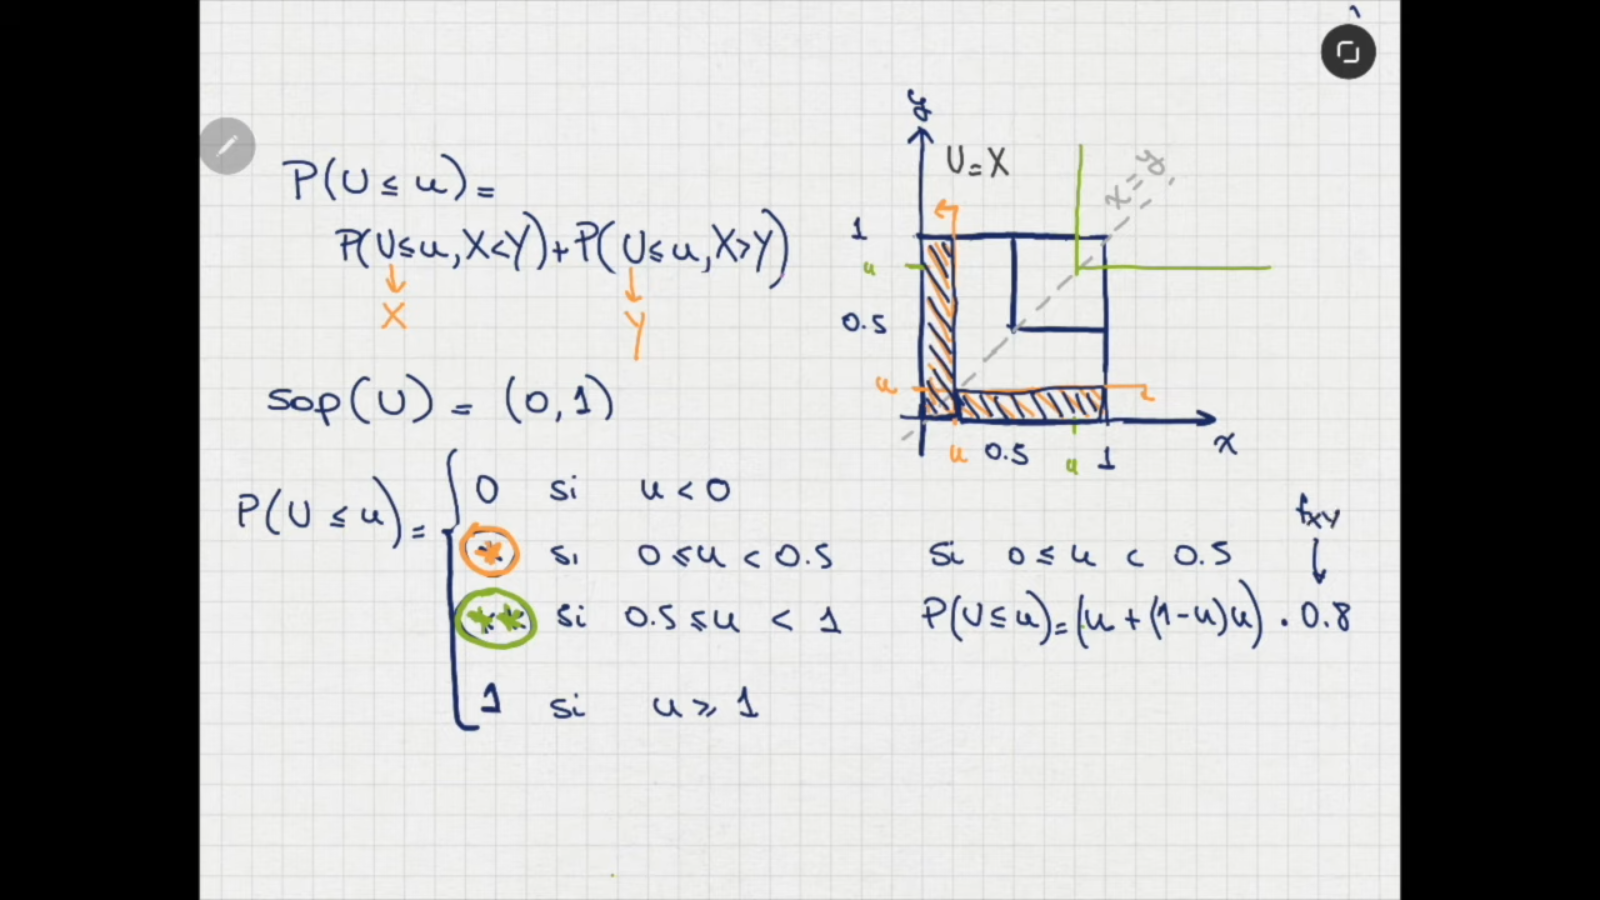 P(U ≤ u) =
P(U ≤ u, X < Y) + P(U ≤ u, X > Y)
X
Y
sop(U) = (0,1)
P(U ≤ u) =
0 si u < 0
* si 0 ≤ u < 0.5
** si 0.5 ≤ u < 1
1 si u ≥ 1
y
U = X
x = y
1
u
0.5
u
u 0.5 u 1
x
fXY
Si 0 ≤ u < 0.5
P(U ≤ u) = (u + (1-u)u) · 0.8